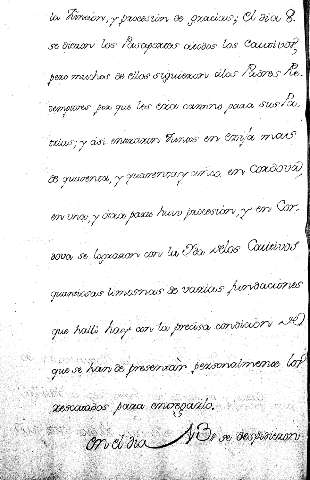 la Funcion, y procession de gracias; El dia 8.
se dieron los Pasaportes atodos los Cautivos,
pero muchos de ellos siguieron alos Padres Re-
temptores por que les era camino para sus Pa-
trias; y asi entraron Juntos en Ecija mas
de quarenta, y quarenta y uno, en Cordova,
en una, y otra parte huvo procesion, y en Cor-
dova se lograron con la Yda delos Cautivos
quantiosas limosnas de varias fundaciones
que halli hay con la precisa condicion de
que se han de presentar personalmente los
rescatados para entregarlo.
On el dia se despidieron